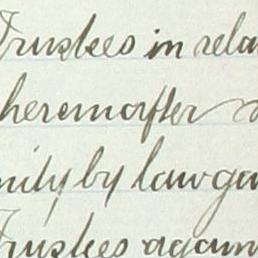 Trustees in rela
hereinafter
nily by law ga
Trustees again